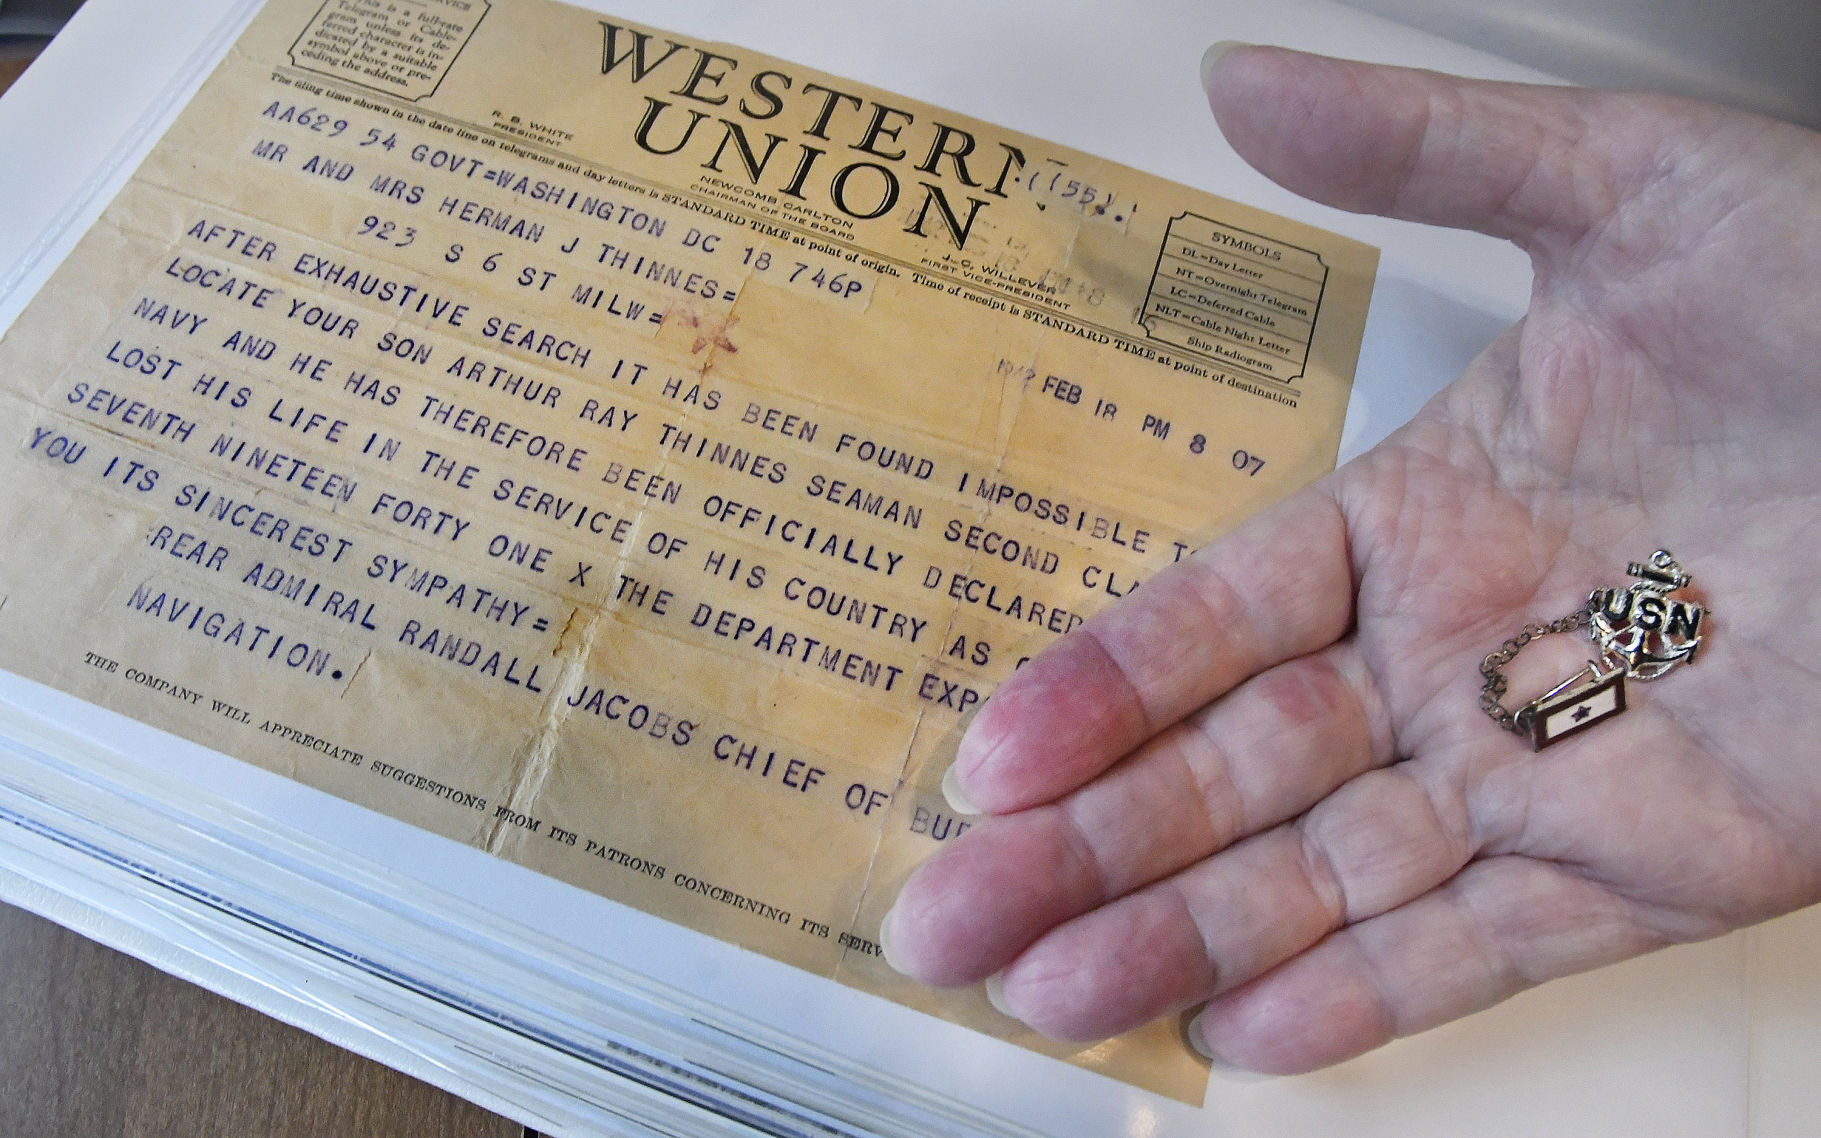 SERVICE
This is a full-rate
Telegram or Cable-
gram unless its de-
ferred character is in-
dicated by a suitable
symbol above or pre-
ceding the address.
WESTERN
UNION
(55)
R. B. WHITE
PRESIDENT
NEWCOMB CARLTON
CHAIRMAN OF THE BOARD
J. C. WILLEVER
FIRST VICE-PRESIDENT
SYMBOLS
DL=Day Letter
NT=Overnight Telegram
LC=Deferred Cable
NLT=Cable Night Letter
Ship Radiogram
The filing time shown in the date line on telegrams and day letters is STANDARD TIME at point of origin. Time of receipt is STANDARD TIME at point of destination
AA629 54 GOVT=WASHINGTON DC 18 746P
MR AND MRS HERMAN J THINNES=
923 S 6 ST MILW=
FEB 18 PM 8 07
AFTER EXHAUSTIVE SEARCH IT HAS BEEN FOUND IMPOSSIBLE TO
LOCATE YOUR SON ARTHUR RAY THINNES SEAMAN SECOND CLA
NAVY AND HE HAS THEREFORE BEEN OFFICIALLY DECLARED
LOST HIS LIFE IN THE SERVICE OF HIS COUNTRY AS
SEVENTH NINETEEN FORTY ONE X THE DEPARTMENT EXP
YOU ITS SINCEREST SYMPATHY=
REAR ADMIRAL RANDALL JACOBS CHIEF OF BU
NAVIGATION.
THE COMPANY WILL APPRECIATE SUGGESTIONS FROM ITS PATRONS CONCERNING ITS SERV
USN